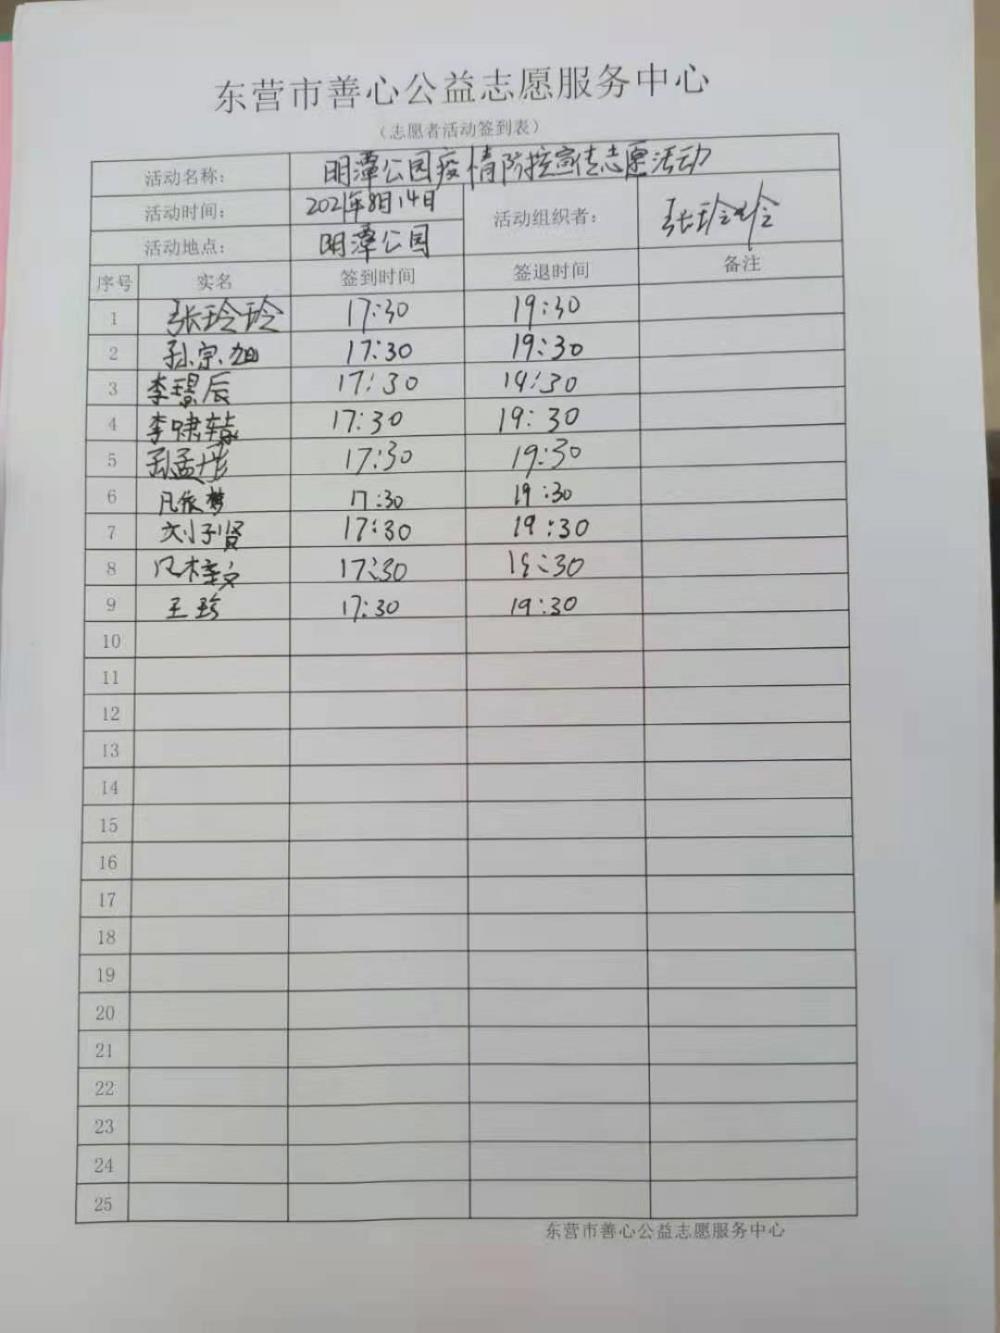 东营市善心公益志愿服务中心
（志愿者活动签到表）
活动名称： 明潭公园疫情防控宣传志愿活动
活动时间： 2021年8月14日 活动组织者： 张玲玲
活动地点： 明潭公园
序号 实名 签到时间 签退时间 备注
1 张玲玲 17:30 19:30
2 孙宗旭 17:30 19:30
3 李琞辰 17:30 19:30
4 李啸 17:30 19:30
5 孙孟彤 17:30 19:30
6 凡依梦 17:30 19:30
7 刘子贤 17:30 19:30
8 17:30 19:30
9 王珍 17:30 19:30
10
11
12
13
14
15
16
17
18
19
20
21
22
23
24
25
东营市善心公益志愿服务中心